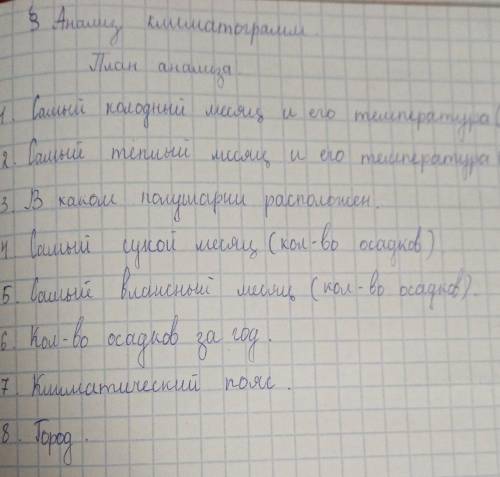 § Анализ климатограмм.
План анализа
1. Самый холодный месяц и его температура (
2. Самый тёплый месяц и его температура
3. В каком полушарии расположен.
4. Самый сухой месяц (кол-во осадков)
5. Самый влажный месяц (кол-во осадков).
6. Кол-во осадков за год.
7. Климатический пояс.
8. Город.